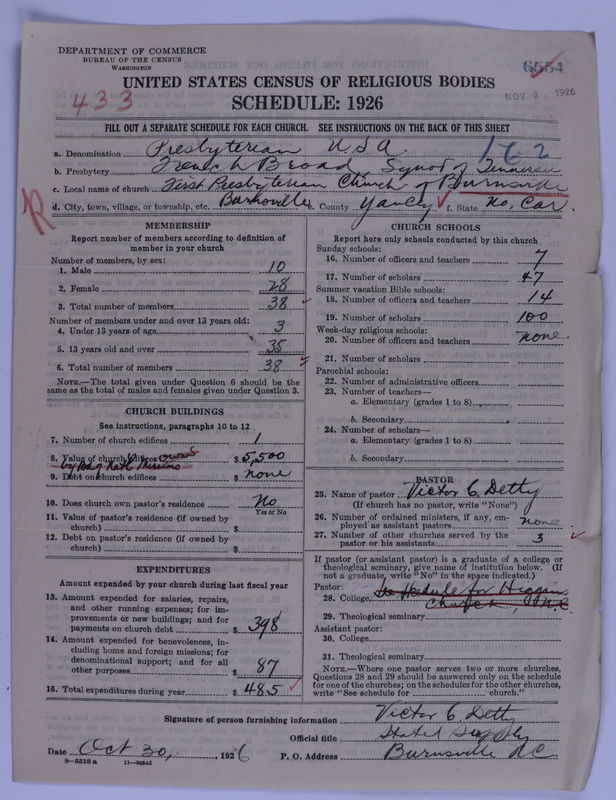 DEPARTMENT OF COMMERCE
BUREAU OF THE CENSUS
WASHINGTON
6554
NOV 2 1926
433
UNITED STATES CENSUS OF RELIGIOUS BODIES
SCHEDULE: 1926
FILL OUT A SEPARATE SCHEDULE FOR EACH CHURCH. SEE INSTRUCTIONS ON THE BACK OF THIS SHEET
162
a. Denomination Presbyterian U.S.A.
b. Presbytery French Broad, Synod of Tennessee
c. Local name of church First Presbyterian Church of Burnsville
d. City, town, village, or township, etc. Burnsville e. County Yancey f. State No. Car.
R
MEMBERSHIP
Report number of members according to definition of member in your church
Number of members, by sex:
1. Male 10
2. Female 28
3. Total number of members 38
Number of members under and over 13 years old:
4. Under 13 years of age 3
5. 13 years old and over 35
6. Total number of members 38
NOTE.—The total given under Question 6 should be the same as the total of males and females given under Question 3.
CHURCH BUILDINGS
See instructions, paragraphs 10 to 12
7. Number of church edifices 1
8. Value of church edifices owned $ 5,500
by Bd of Natl Missions
9. Debt on church edifices $ none
10. Does church own pastor's residence No
Yes or No
11. Value of pastor's residence (if owned by church) $
12. Debt on pastor's residence (if owned by church) $
EXPENDITURES
Amount expended by your church during last fiscal year
13. Amount expended for salaries, repairs, and other running expenses; for improvements or new buildings; and for payments on church debt $ 398
14. Amount expended for benevolences, including home and foreign missions; for denominational support; and for all other purposes $ 87
15. Total expenditures during year $ 485
CHURCH SCHOOLS
Report here only schools conducted by this church
Sunday schools:
16. Number of officers and teachers 7
17. Number of scholars 47
Summer vacation Bible schools:
18. Number of officers and teachers 14
19. Number of scholars 100
Week-day religious schools:
20. Number of officers and teachers none
21. Number of scholars
Parochial schools:
22. Number of administrative officers
23. Number of teachers—
a. Elementary (grades 1 to 8)
b. Secondary
24. Number of scholars—
a. Elementary (grades 1 to 8)
b. Secondary
PASTOR
25. Name of pastor Victor C. Detty
(If church has no pastor, write "None")
26. Number of ordained ministers, if any, employed as assistant pastors none
27. Number of other churches served by the pastor or his assistants 3
If pastor (or assistant pastor) is a graduate of a college or theological seminary, give name of institution below. (If not a graduate, write "No" in the space indicated.)
Pastor:
28. College See Schedule for Higgins
Church, N.C.
29. Theological seminary
Assistant pastor:
30. College
31. Theological seminary
NOTE.—Where one pastor serves two or more churches, Questions 28 and 29 should be answered only on the schedule for one of the churches; on the schedules for the other churches, write "See schedule for church."
Signature of person furnishing information Victor C. Detty
Official title Stated Supply
Date Oct 30, 1926 P. O. Address Burnsville N.C.
8—5518 a 11—9054d